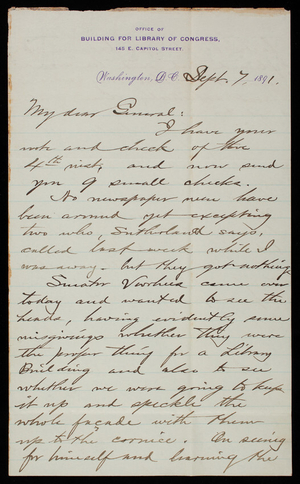 OFFICE OF
BUILDING FOR LIBRARY OF CONGRESS,
145 E. CAPITOL STREET.
Washington, D.C. Sept. 7, 1891.
My dear General:
I have your
note and check of the
4th inst., and now send
you 9 small checks.
No newspaper men have
been around yet excepting
two who, Sutherland says,
called last week while I
was away - but they got nothing.
Senator Voorhees came over
today and wanted to see the
heads, having evidently some
misgivings whether they were
the proper thing for a Library
Building and also to see
whether we were going to keep
it up and speckle the
whole façade with them
up to the cornice. On seeing
for himself and learning the